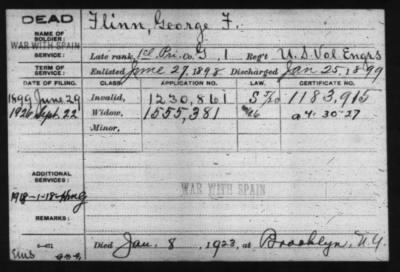 DEAD
NAME OF SOLDIER:
Flinn, George F.
WAR WITH SPAIN
Late rank, 1cl Pri. Co. G, 1 Reg't U.S. Vol Engrs
TERM OF SERVICE:
Enlisted June 27, 1898 Discharged Jan 25, 1899
DATE OF FILING. CLASS. APPLICATION NO. LAW. CERTIFICATE NO.
1899 June 29 Invalid, 1230,861 1183,915
1926 Sept. 22 Widow, 1555,381 a 4-30-27
Minor,
ADDITIONAL SERVICES:
WAR WITH SPAIN
REMARKS:
Died Jan. 8, 1923, at Brooklyn, N.Y.